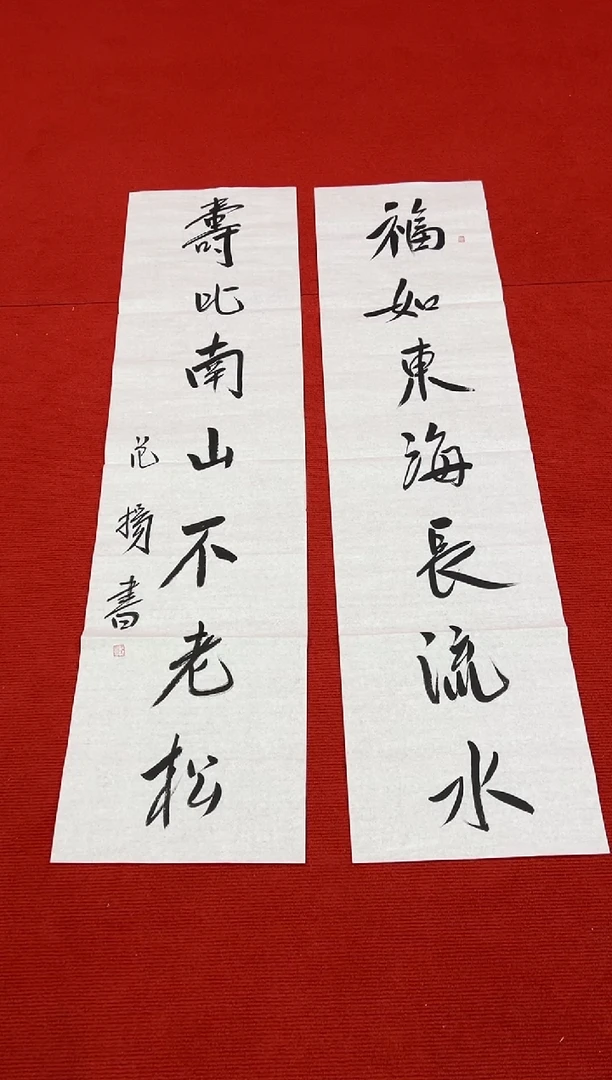 福如東海長流水
壽比南山不老松
范揚書